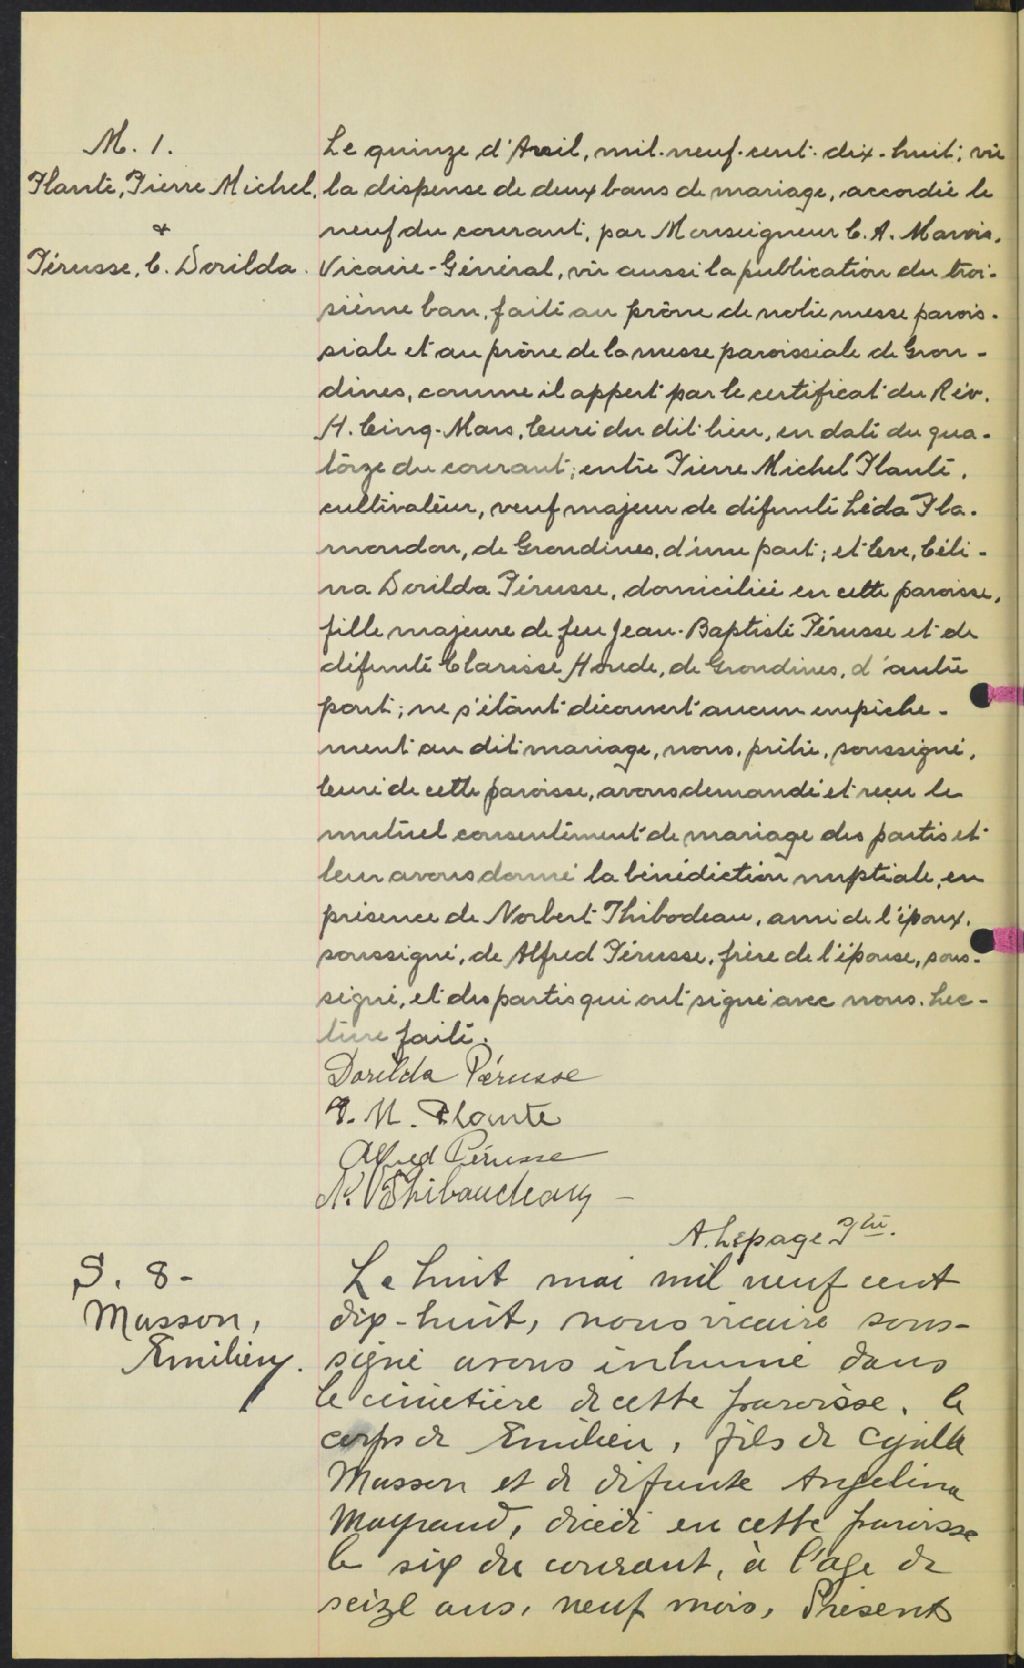 M. 1.
Plante, Pierre Michel.
&
Pérusse, C. Dorilda.
Le quinze d'Avril, mil-neuf-cent-dix-huit; vu
la dispense de deux bans de mariage, accordée le
neuf du courant, par Monseigneur C. A. Marois,
Vicaire-Général, vu aussi la publication du troi-
sième ban, faite au prône de notre messe parois-
siale et au prône de la messe paroissiale de Gron-
dines, comme il appert par le certificat du Rév.
H. Cinq-Mars, Curé du dit lieu, en date du qua-
torze du courant; entre Pierre Michel Plante,
cultivateur, veuf majeur de défunte Léda Pla-
mondon, de Grondines, d'une part; et Céli-
na Dorilda Pérusse, domiciliée en cette paroisse,
fille majeure de feu Jean-Baptiste Pérusse et de
défunte Clarisse Houde, de Grondines, d'autre
part; ne s'étant découvert aucun empêche-
ment au dit mariage, nous, prêtre, soussigné,
Curé de cette paroisse, avons demandé et reçu le
mutuel consentement de mariage des partis et
leur avons donné la bénédiction nuptiale, en
présence de Norbert Thibodeau, ami de l'époux,
soussigné, de Alfred Pérusse, frère de l'épouse, sous-
signé, et des partis qui ont signé avec nous. Lec-
ture faite.
Dorilda Pérusse
P. M. Plante
Alfred Pérusse
N. Thibaudeau
A. Lepage Ptre.
S. 8-
Masson,
Emilien.
Le huit mai mil neuf cent
dix-huit, nous vicaire sous-
signé avons inhumé dans
le cimetière de cette paroisse, le
corps de Emilien, fils de Cyrille
Masson et de défunte Angelina
Mayrand, décédé en cette paroisse
le six du courant, à l'age de
seize ans, neuf mois, Présents